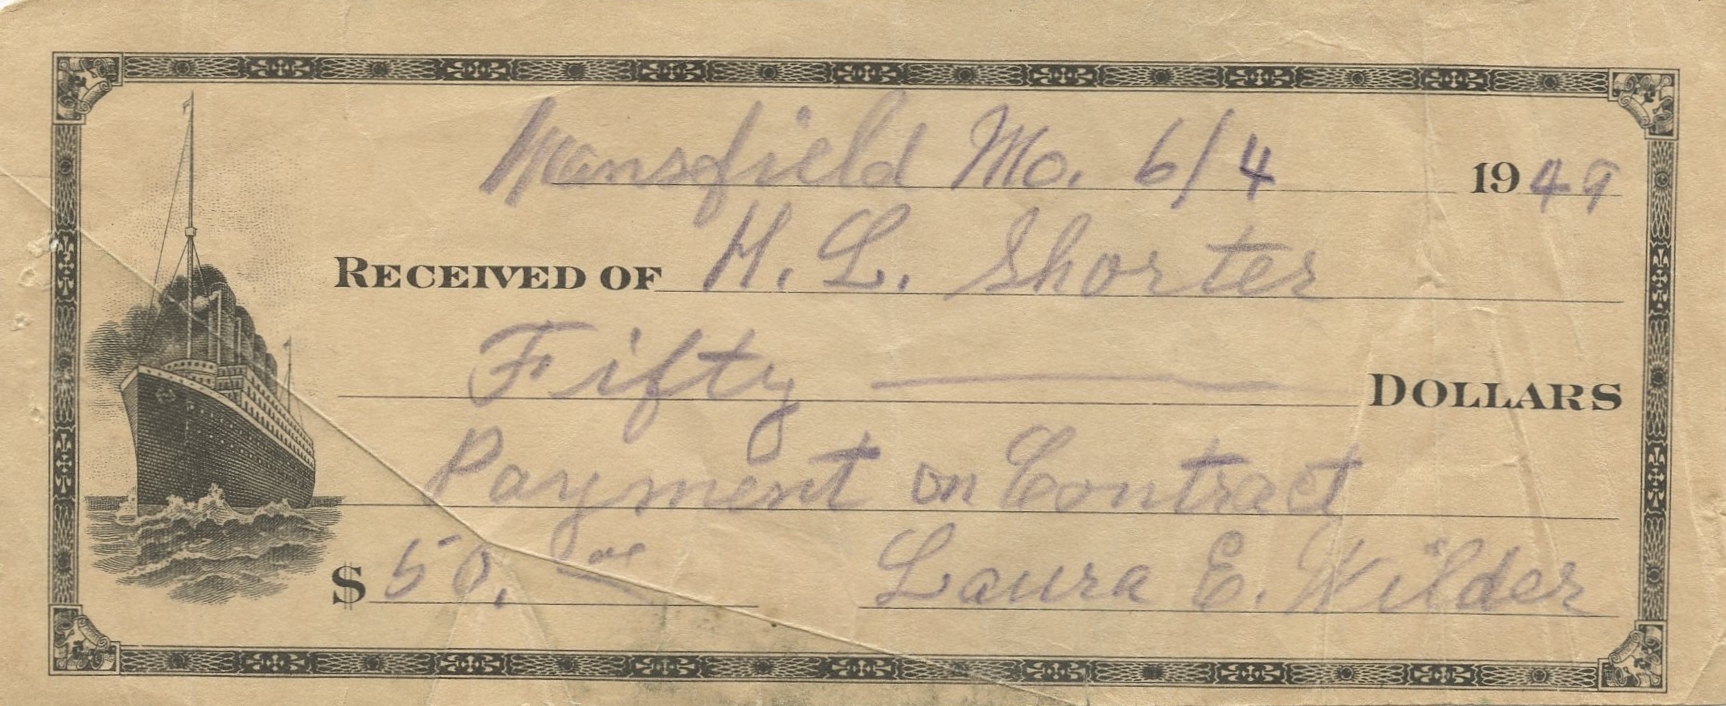 Mansfield Mo. 6/4 1949
RECEIVED OF H. L. Shorter
Fifty — DOLLARS
Payment on Contract
$ 50. 00 Laura E. Wilder